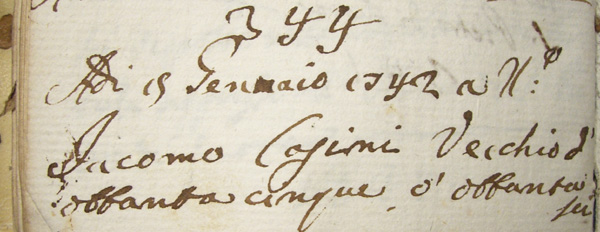 344
Adi 15 Gennaio 1742 a N:º
Jacomo Casini Vecchio d'
ottanta cinque ò ottanta
sei